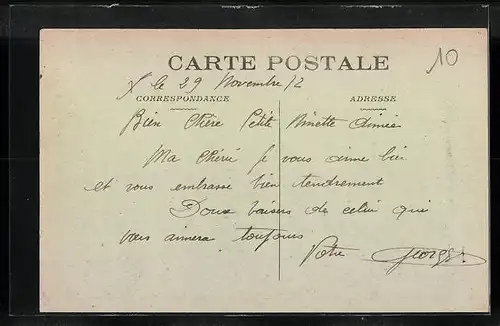 CARTE POSTALE
10
X le 29 Novembre 12
CORRESPONDANCE
ADRESSE
Bien Chère Petite Ninette Aimée
Ma Chérie Je vous aime bien
et vous embrasse bien tendrement
Doux baisers de celui qui
vous aimera toujours
Votre Georges